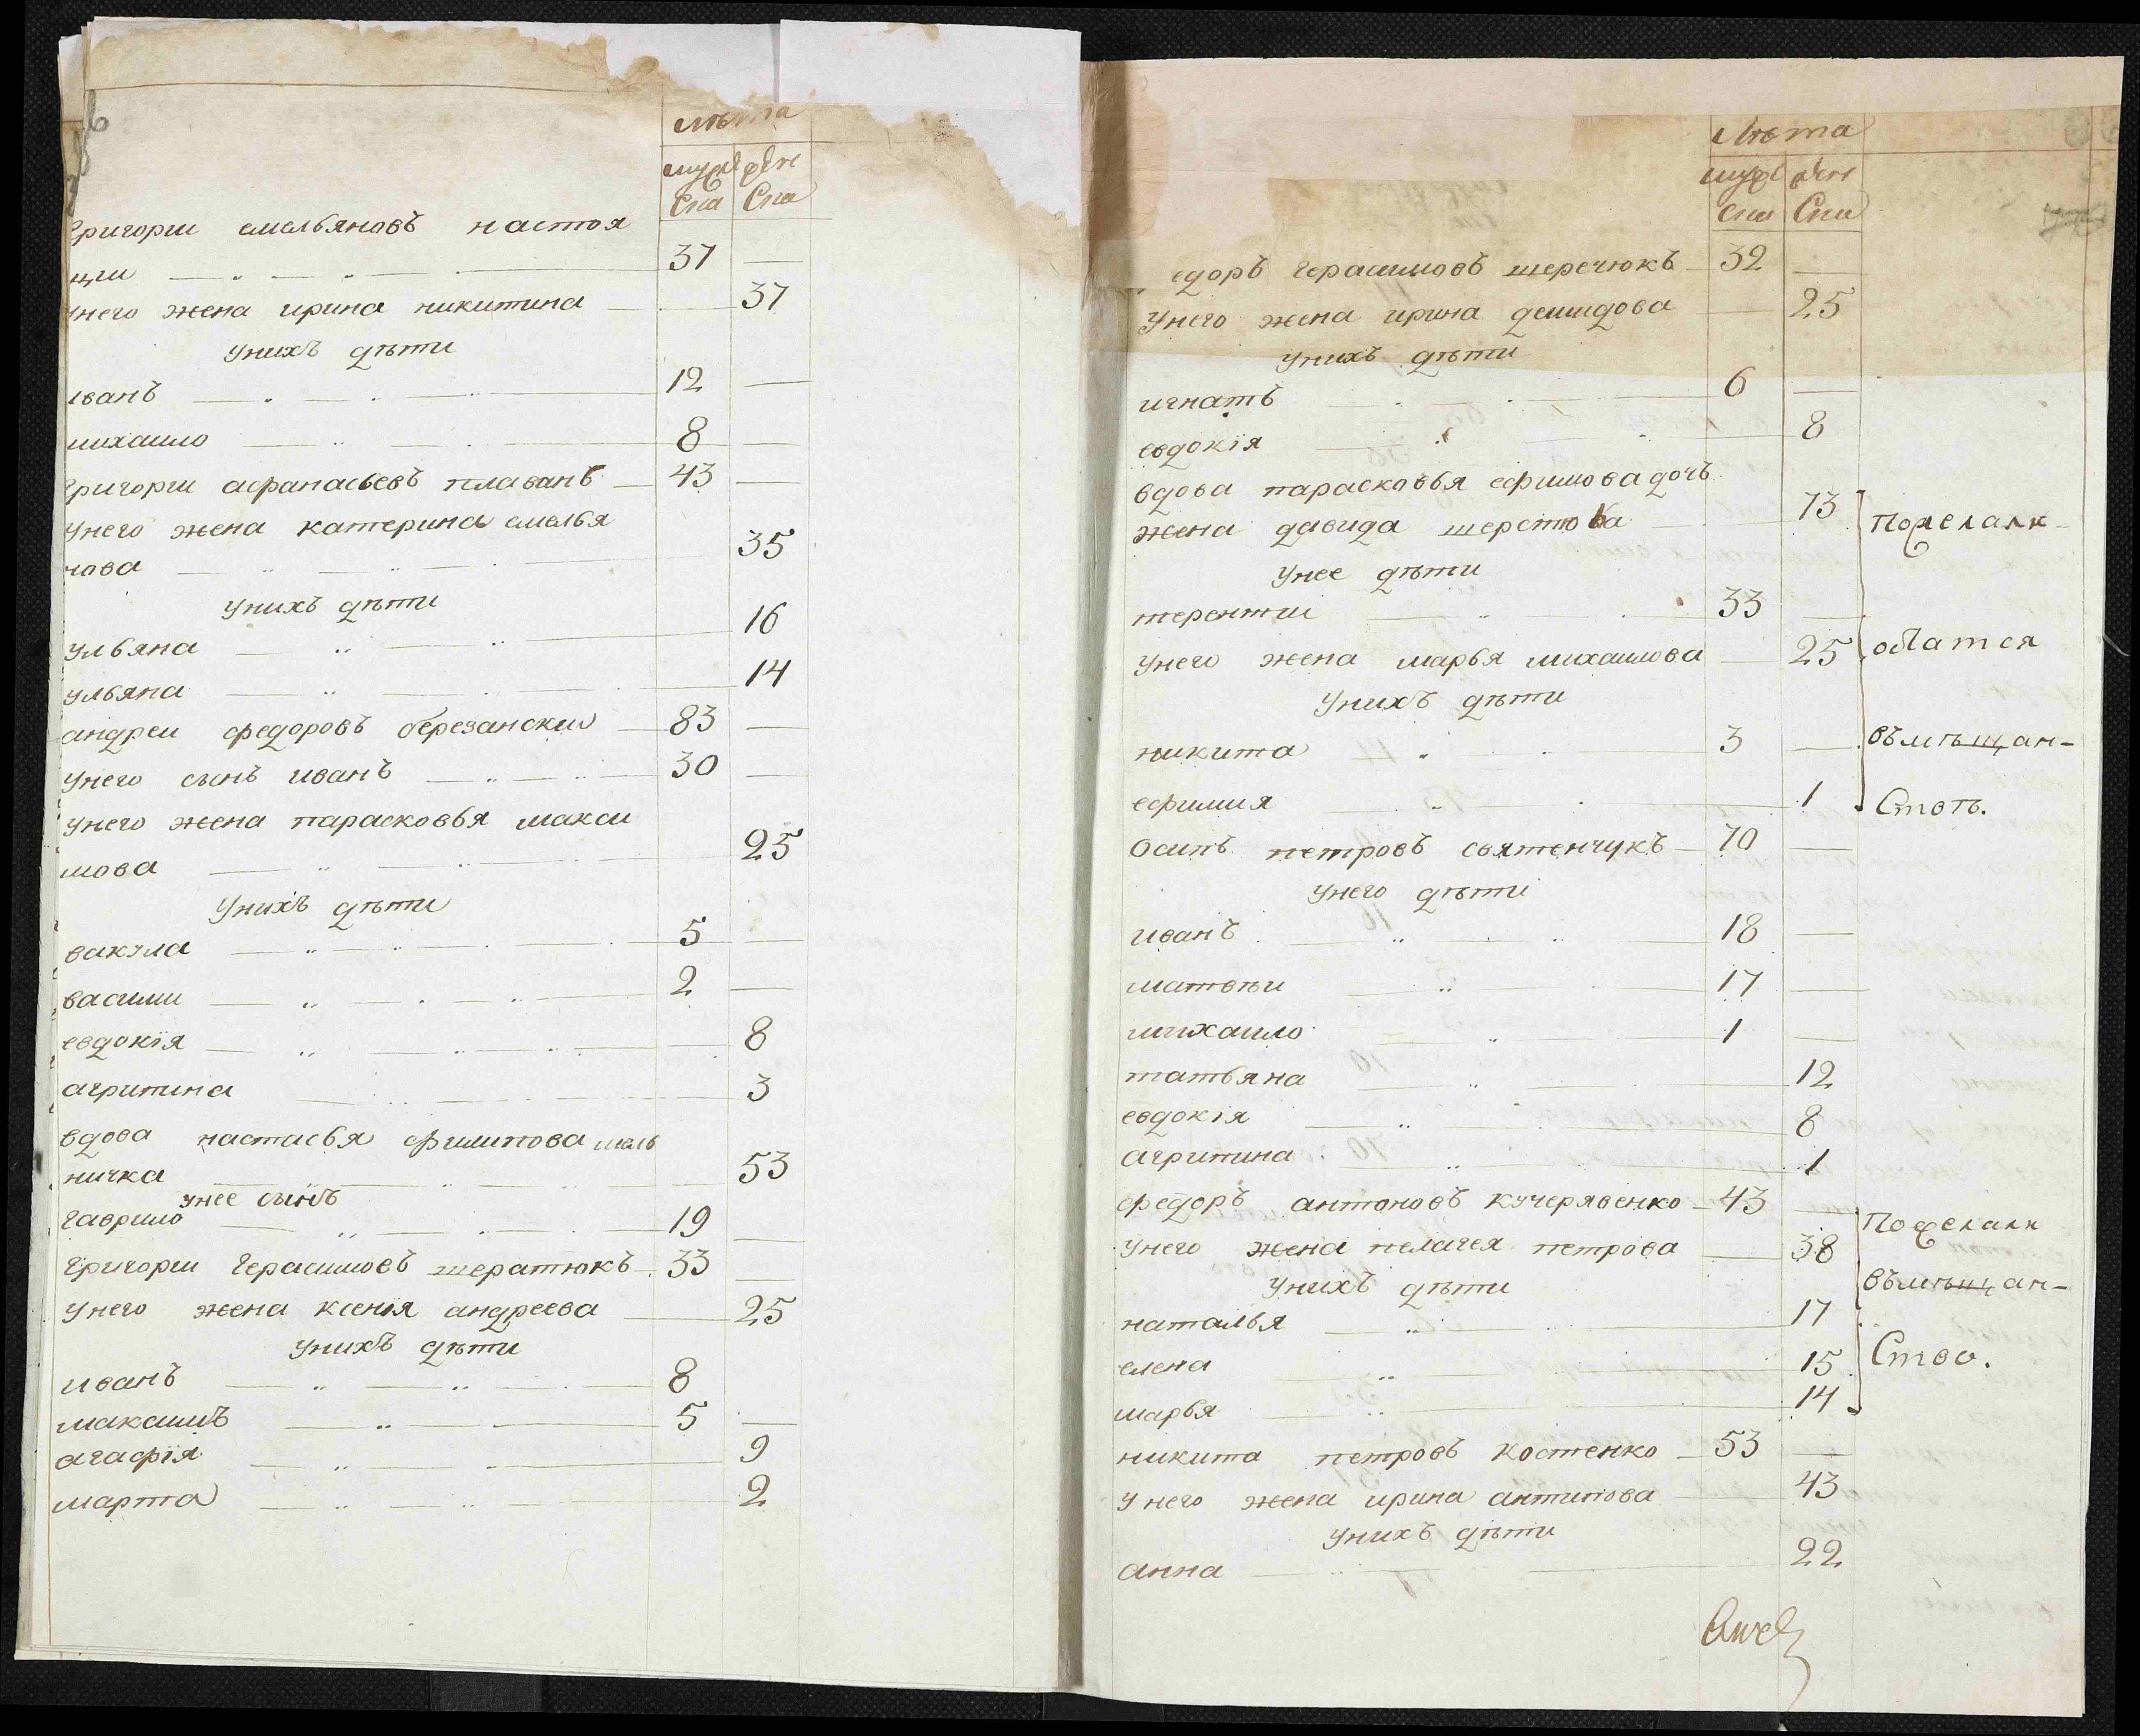 лѣта
муже жен
ска ска
григории емельяновъ настоя
щии 37
унего жена ирина никитина 37
унихъ дѣти
иванъ 12
михаило 8
григории афанасьевъ плаванъ 43
унего жена катерина емелья
нова 35
унихъ дѣти
ульяна 16
ульяна 14
андреи федоровъ березански 83
унего сынъ иванъ 30
унего жена парасковья макси
мова 25
унихъ дѣти
вакула 5
василии 2
евдокїя 8
агрипина 3
вдова настасья филипова мель
ничка 53
унее сынъ
гаврило 19
григории герасимовъ шератюкъ 33
унего жена ксенїя андреева 25
унихъ дѣти
иванъ 8
максимъ 5
агафїя 9
марта 2
лѣта
муже жен
ска ска
едоръ герасимовъ шеречюкъ 32
унего жена ирина демидова 25
унихъ дѣти
игнатъ 6
евдокїя 8
вдова парасковья ефимова дочь
жена давида шерстюка 73
унее дѣти
терентии 33
унего жена марья михаилова 25
унихъ дѣти
никита 3
ефимия 1
пожелали
въмѣщан-
ство.
осипъ петровъ святенчукъ 70
унего дѣти
иванъ 18
матвѣи 17
михаило 1
татьяна 12
евдокїя 8
агрипина 1
федоръ антоновъ кучерявенко 43
унего жена пелагея петрова 38
унихъ дѣти
наталья 17
елена 15
марья 14
пожелали
въмѣщан-
ство.
никита петровъ костенко 53
унего жена ирина антипова 43
унихъ дѣти
анна 22